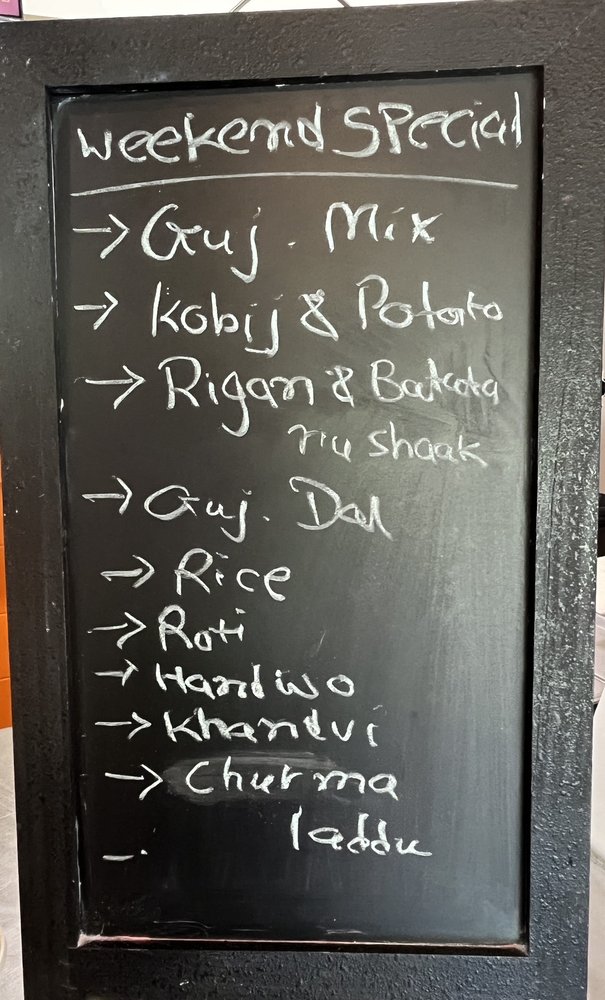 Weekend Special
→ Guj. Mix
→ Kobij & Potato
→ Rigan & Batata
nu shaak
→ Guj. Dal
→ Rice
→ Roti
→ Handwo
→ Khandvi
→ Churma
laddu